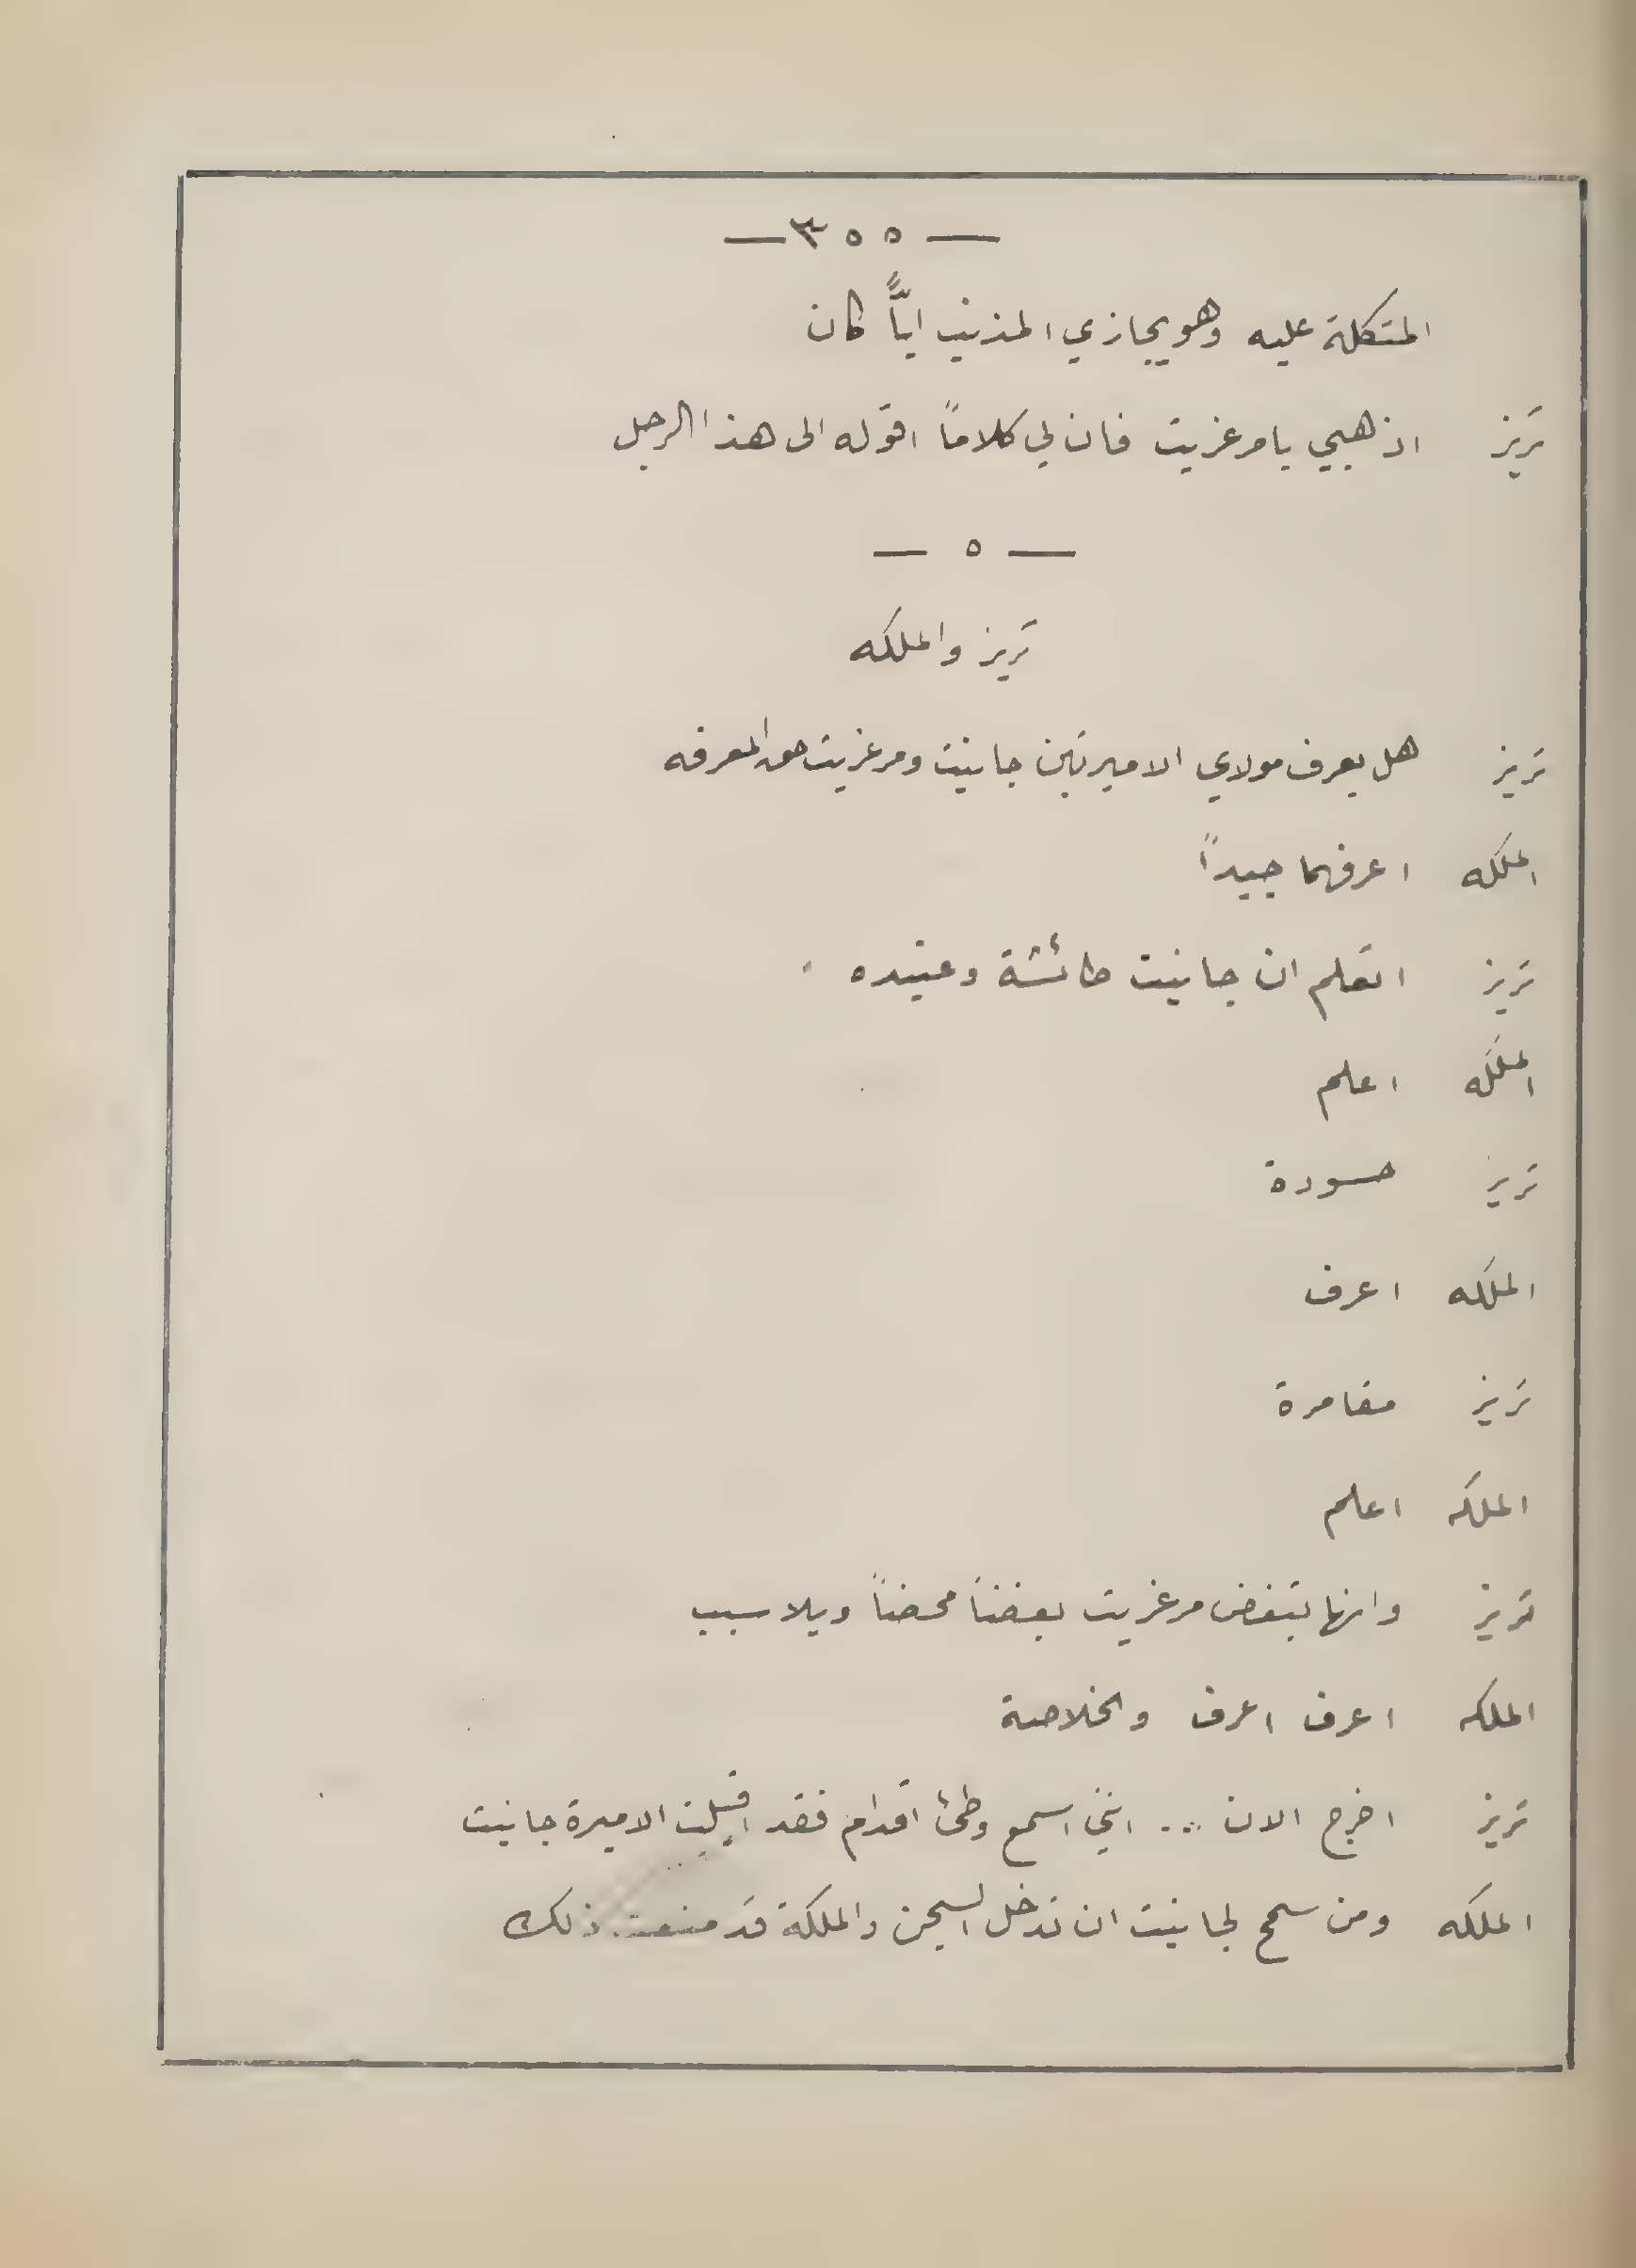 — ٣٥٥ —
المتكلة عليه وهو يجازي المذنب ايًّا كان
تريز اذهبي يا مرغريت فان لي كلاماً اقوله الى هذا الرجل
— ٥ —
تريز والملكه
تريز هل يعرف مولاي الاميرتين جانيت ومرغريت حق المعرفه
الملكه اعرفهما جيداً
تريز اتعلم ان جانيت طائشة وعنيده
الملكه اعلم
تريز حسودة
الملكه اعرف
تريز مقامرة
الملكه اعلم
تريز وانها تبغض مرغريت بغضاً محضاً وبلا سبب
الملكه اعرف اعرف والخلاصة
تريز اخرج الان ... انني اسمع وطئ اقدام فقد اقبلت الاميرة جانيت
الملكه ومن سمح لجانيت ان تدخل السجن والملكة قد منعت ذلك